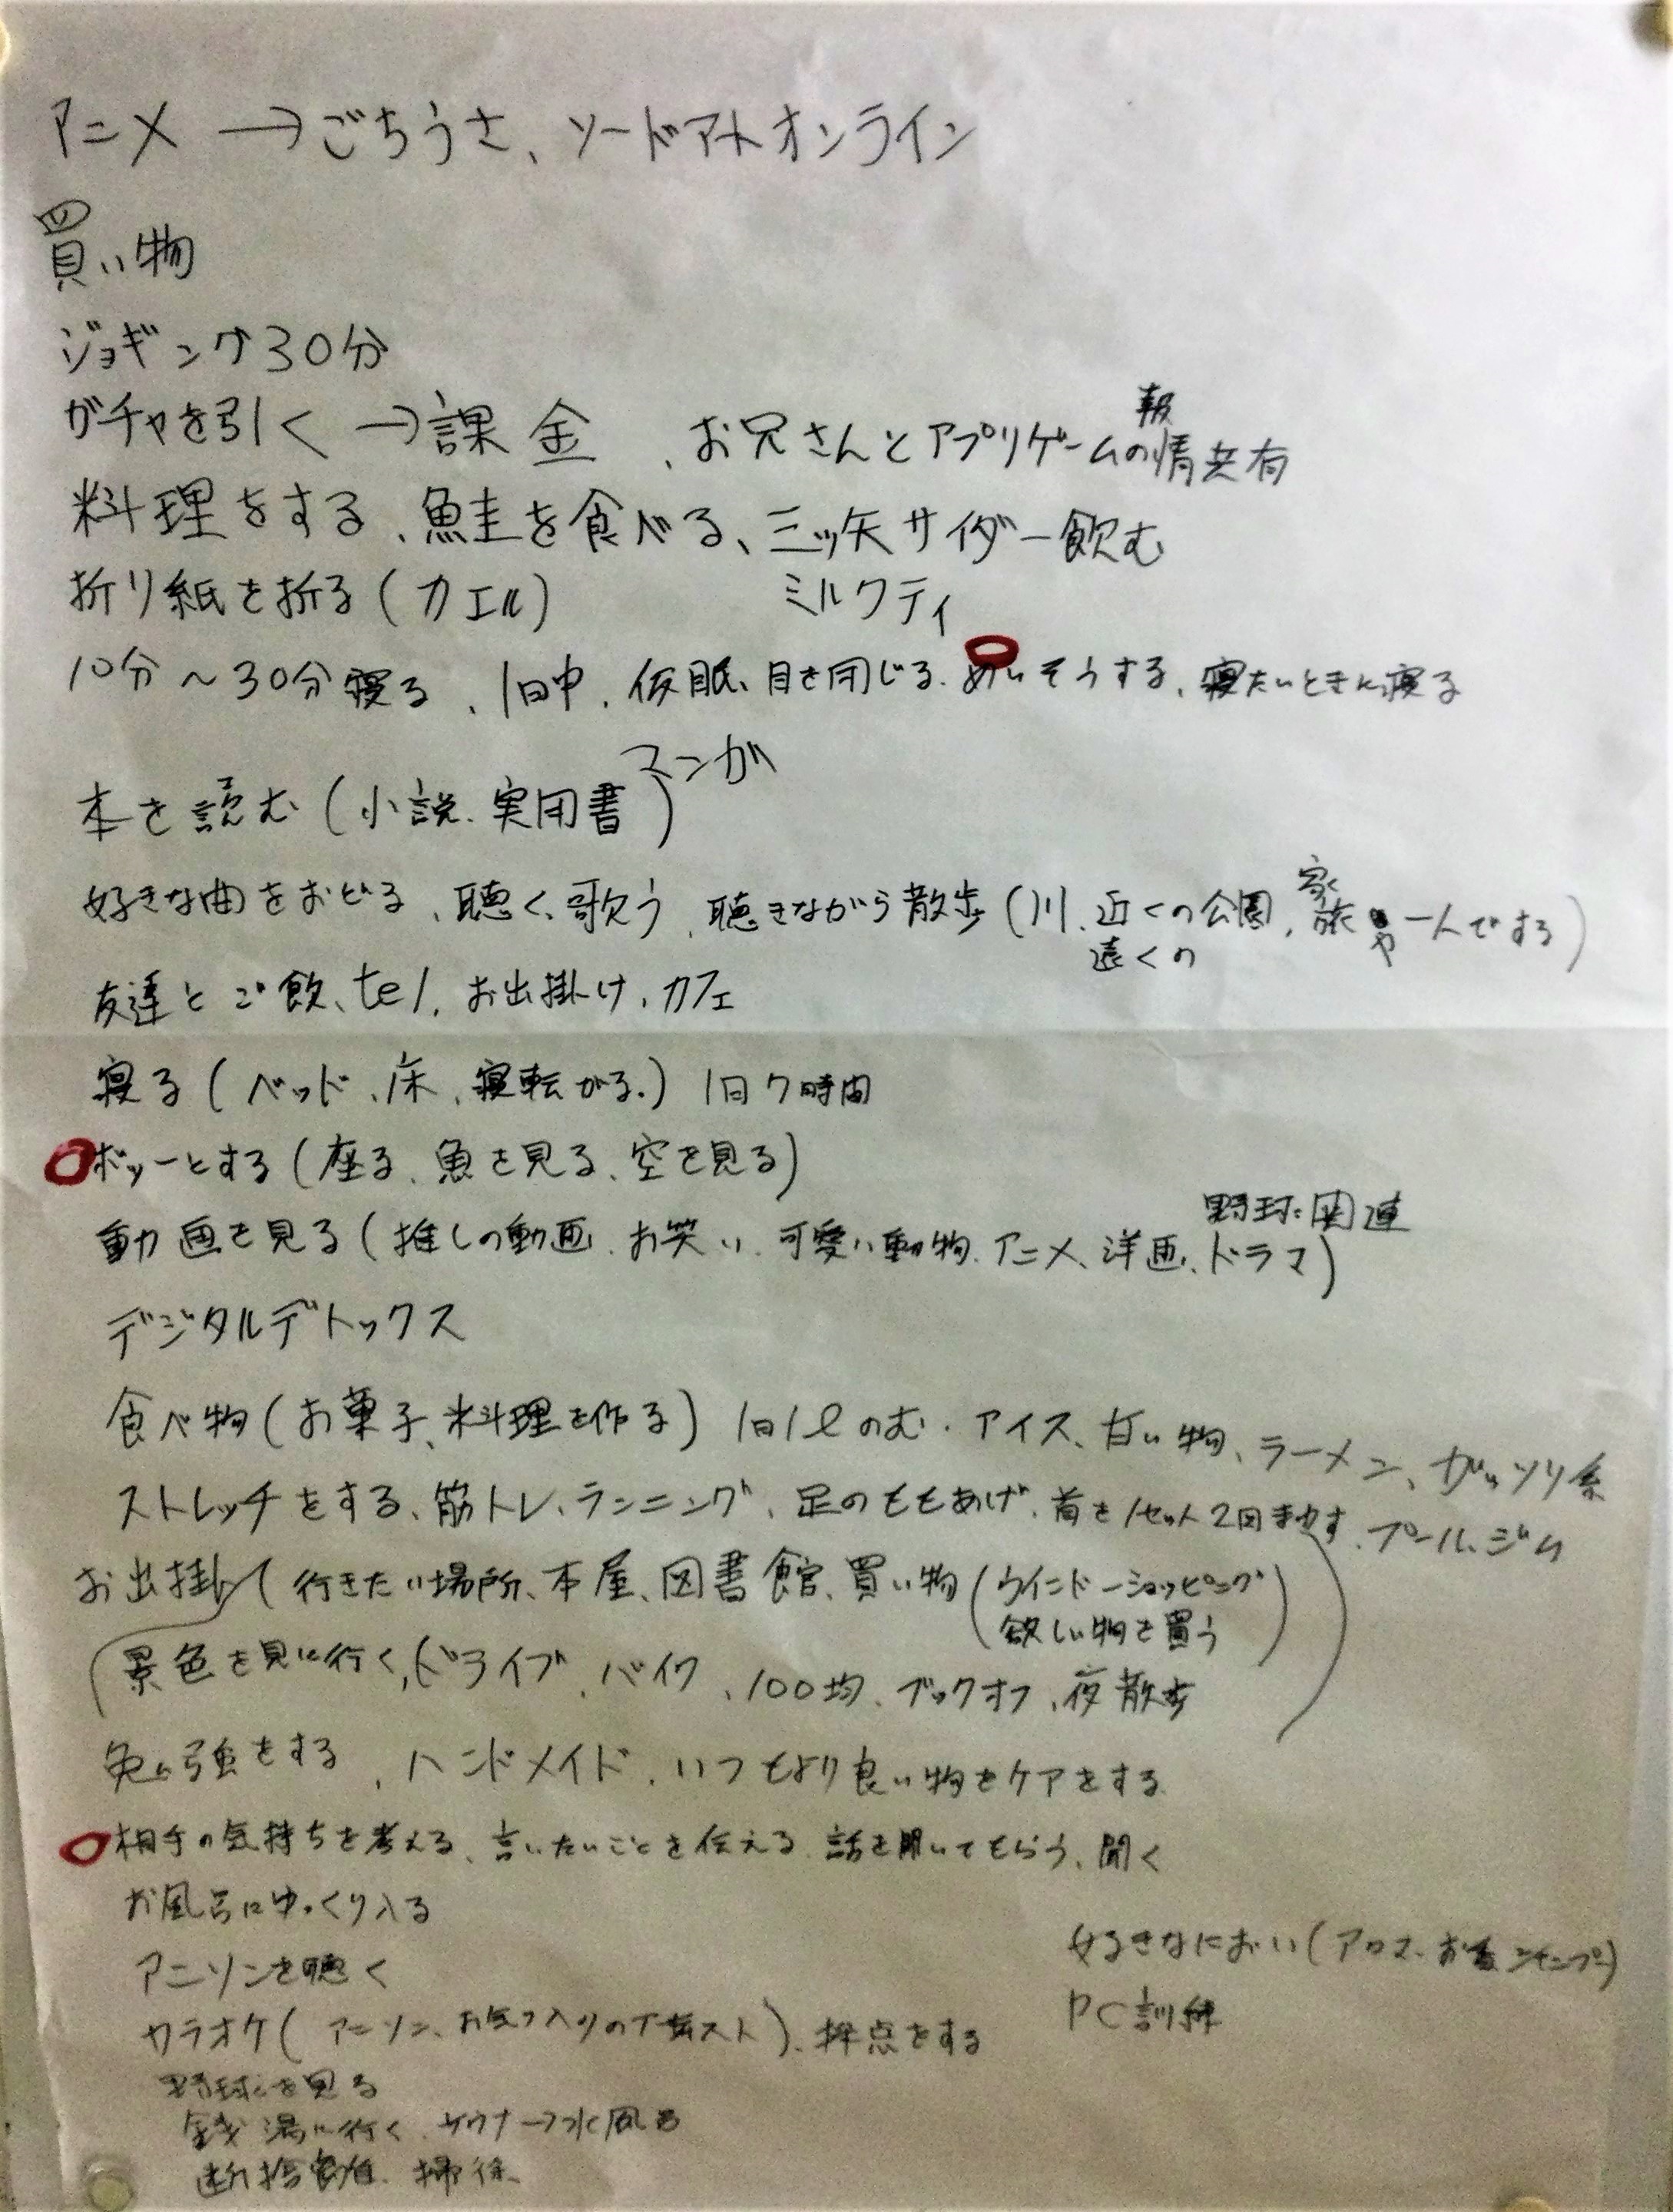 アニメ →ごちうさ、ソードアートオンライン
買い物
ジョギング30分
ガチャを引く →課金 、お兄さんとアプリゲームの情報共有
料理をする、鮭を食べる、三ッ矢サイダー飲む
折り紙を折る(カエル) ミルクティ
10分〜30分寝る、1日中、仮眠、目を閉じる、めいそうする、寝たいときに寝る
本を読む(小説、実用書)マンガ
好きな曲をおどる、聴く、歌う、聴きながら散歩(川、近くの公園、家族や一人でする)
遠くの
友達とご飲、tel、お出掛け、カフェ
寝る(ベッド、床、寝転がる。) 1日7時間
ボッーとする(座る、魚を見る、空を見る)
野球関連
動画を見る(推しの動画、お笑い、可愛い動物、アニメ、洋画、ドラマ)
デジタルデトックス
食べ物(お菓子、料理を作る) 1日1ℓのむ・アイス、甘い物、ラーメン、ガッツリ系
ストレッチをする、筋トレ、ランニング、足のももあげ、首を1セット2回まわす、プール、ジム
お出掛け(行きたい場所、本屋、図書館、買い物(ウインドーショッピング
欲しい物を買う)
景色を見に行く、ドライブ、バイク、100均、ブックオフ、夜散歩)
勉強をする、ハンドメイド、いつもより良い物をケアをする
相手の気持ちを考える、言いたいことを伝える、話を聞いてもらう、聞く
お風呂にゆっくり入る
アニソンを聴く
カラオケ(アニソン、お気に入りの)、採点をする
野球を見る
銭湯に行く、サウナ→水風呂
断捨離、掃除、
好きなにおい(アロマ、お香、シャンプー)
PC訓練